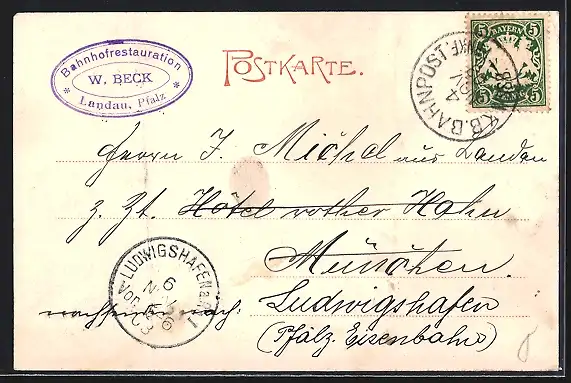 Bahnhofrestauration
W. BECK
* Landau, Pfalz *
POSTKARTE.
5 BAYERN 5
5 PFENNIG 5
K.B. BAHNPOST.
Herrn J. Michel aus Landau
z. Zt. Hôtel rother Hahn
München.
LUDWIGSHAFEN a. Rh. I
6
Ludwigshafen
(Pfälz. Eisenbahn)